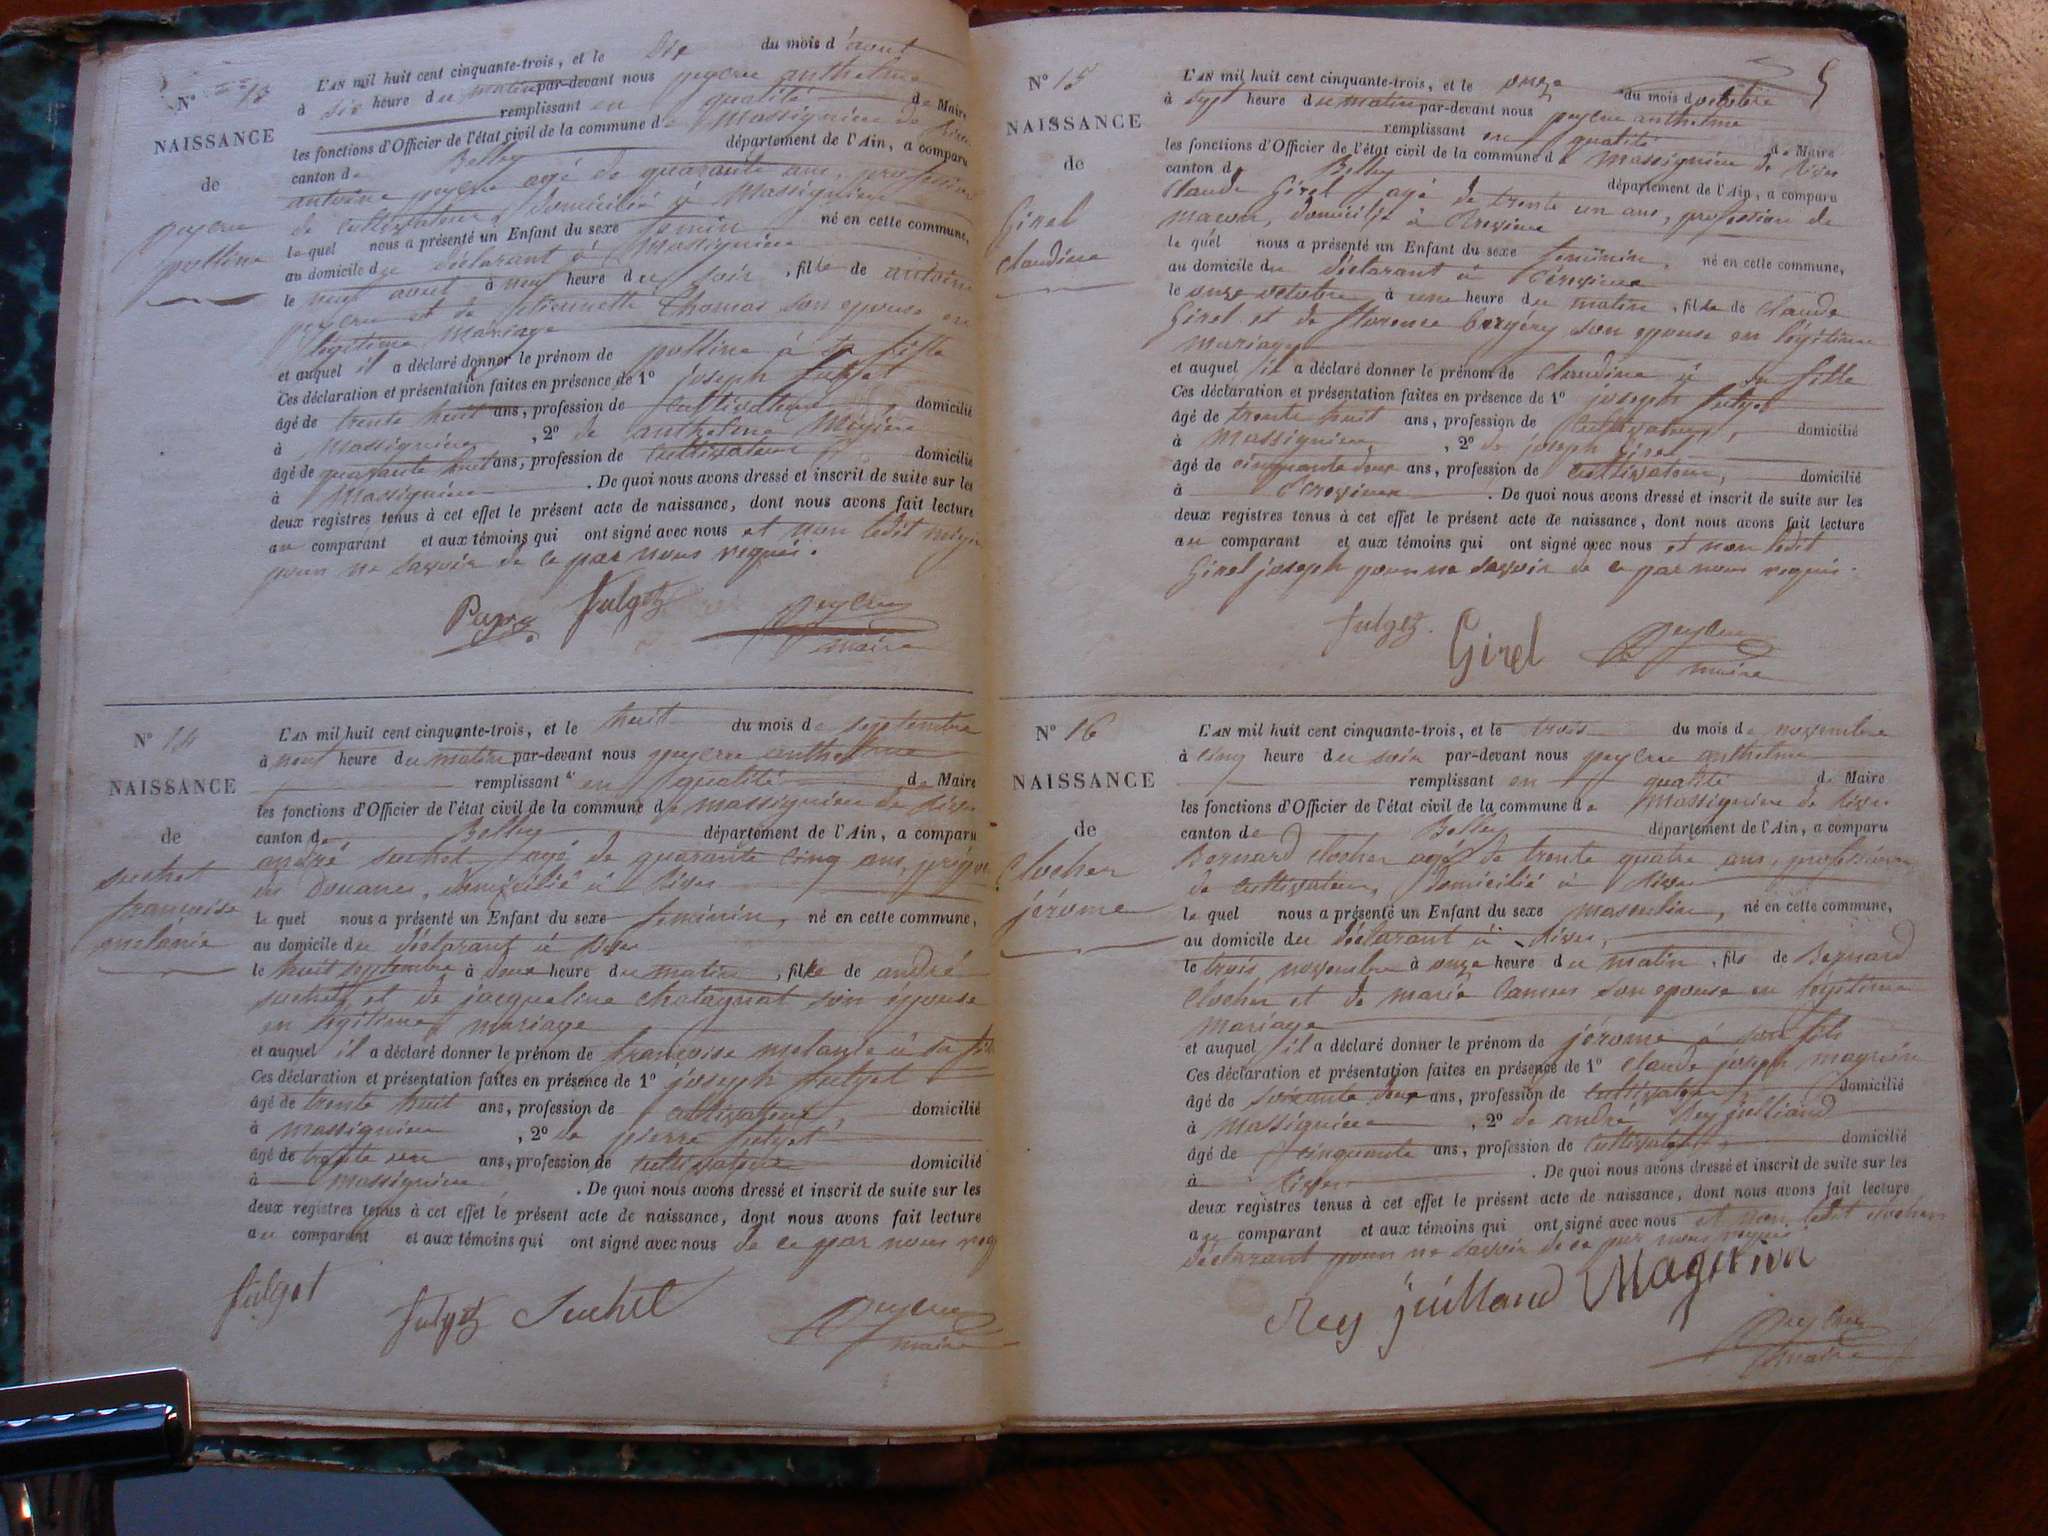 N° 13
NAISSANCE
de
peycru
polline
L'AN mil huit cent cinquante-trois, et le dix du mois d'aout
à six heure du matin par-devant nous peycru anthelme
remplissant en qualité de Maire
les fonctions d'Officier de l'état civil de la commune de Massignieu de Rives
canton de Belley département de l'Ain, a comparu
antoine peycru agé de quarante ans, profession
de cultivateur, domicilié à Massignieu
le quel nous a présenté un Enfant du sexe feminin né en cette commune,
au domicile du déclarant à Massignieu
le neuf aout à neuf heure du soir, fille de antoine
peycru et de Thomas son epouse en
legitime mariage
et auquel il a déclaré donner le prénom de polline à sa fille
Ces déclaration et présentation faites en présence de 1° joseph fulget
âgé de trente huit ans, profession de cultivateur domicilié
à Massignieu, 2° de anthelme Migieu
âgé de quarante huit ans, profession de cultivateur domicilié
à Massignieu. De quoi nous avons dressé et inscrit de suite sur les
deux registres tenus à cet effet le présent acte de naissance, dont nous avons fait lecture
au comparant et aux témoins qui ont signé avec nous et non ledit
pour ne savoir de ce par nous requis.
fulget peycru
maire
N° 14
NAISSANCE
de
suchet
françoise
melanie
L'AN mil huit cent cinquante-trois, et le huit du mois de septembre
à neuf heure du matin par-devant nous peycru anthelme
remplissant en qualité de Maire
les fonctions d'Officier de l'état civil de la commune de massignieu de Rives
canton de Belley département de l'Ain, a comparu
andré suchet agé de quarante cinq ans, préposé
des Douanes, domicilié à Rives
le quel nous a présenté un Enfant du sexe feminin, né en cette commune,
au domicile du déclarant à Rives
le huit septembre à deux heure du matin, fille de andré
suchet et de jacqueline chatagnat son épouse
en legitime mariage
et auquel il a déclaré donner le prénom de françoise melanie à sa fille
Ces déclaration et présentation faites en présence de 1° joseph fulget
âgé de trente huit ans, profession de cultivateur, domicilié
à massignieu, 2° de pierre fulget
âgé de trente un ans, profession de cultivateur domicilié
à massignieu. De quoi nous avons dressé et inscrit de suite sur les
deux registres tenus à cet effet le présent acte de naissance, dont nous avons fait lecture
au comparant et aux témoins qui ont signé avec nous de ce par nous requis
fulget
fulget Suchet peycru
maire
5
N° 15
NAISSANCE
de
Girel
claudine
L'AN mil huit cent cinquante-trois, et le onze du mois d'octobre
à sept heure du matin par-devant nous peycru anthelme
remplissant en qualité de Maire
les fonctions d'Officier de l'état civil de la commune de Massignieu de Rives
canton de Belley département de l'Ain, a comparu
claude Girel agé de trente un ans, profession de
macon, domicilié à
le quel nous a présenté un Enfant du sexe feminin, né en cette commune,
au domicile du déclarant à
le onze octobre à une heure du matin, fille de claude
Girel et de florence son epouse en légitime
mariage
et auquel il a déclaré donner le prénom de claudine à sa fille
Ces déclaration et présentation faites en présence de 1° joseph fulget
âgé de trente huit ans, profession de cultivateur, domicilié
à Massignieu, 2° de joseph Girel
âgé de cinquante deux ans, profession de cultivateur, domicilié
à . De quoi nous avons dressé et inscrit de suite sur les
deux registres tenus à cet effet le présent acte de naissance, dont nous avons fait lecture
au comparant et aux témoins qui ont signé avec nous et non ledit
Girel joseph pour ne savoir de ce par nous requis.
fulget Girel peycru
maire
N° 16
NAISSANCE
de
clocher
jérome
L'AN mil huit cent cinquante-trois, et le trois du mois de novembre
à cinq heure du soir par-devant nous peycru anthelme
remplissant en qualité de Maire
les fonctions d'Officier de l'état civil de la commune de Massignieu de Rives
canton de Belley département de l'Ain, a comparu
Bernard clocher agé de trente quatre ans, profession
de cultivateur, domicilié à Rives
le quel nous a présenté un Enfant du sexe masculin, né en cette commune,
au domicile du déclarant à Rives,
le trois novembre à onze heure du matin, fils de Bernard
Clocher et de marie son epouse en légitime
mariage
et auquel il a déclaré donner le prénom de jérome à son fils
Ces déclaration et présentation faites en présence de 1° claude joseph magnin
âgé de soixante deux ans, profession de cultivateur domicilié
à Massignieu, 2° de andré Rey juilland
âgé de cinquante ans, profession de cultivateur domicilié
à Rives. De quoi nous avons dressé et inscrit de suite sur les
deux registres tenus à cet effet le présent acte de naissance, dont nous avons fait lecture
au comparant et aux témoins qui ont signé avec nous et non ledit clocher
déclarant pour ne savoir de ce par nous requis
Rey juilland Magnin
peycru
maire